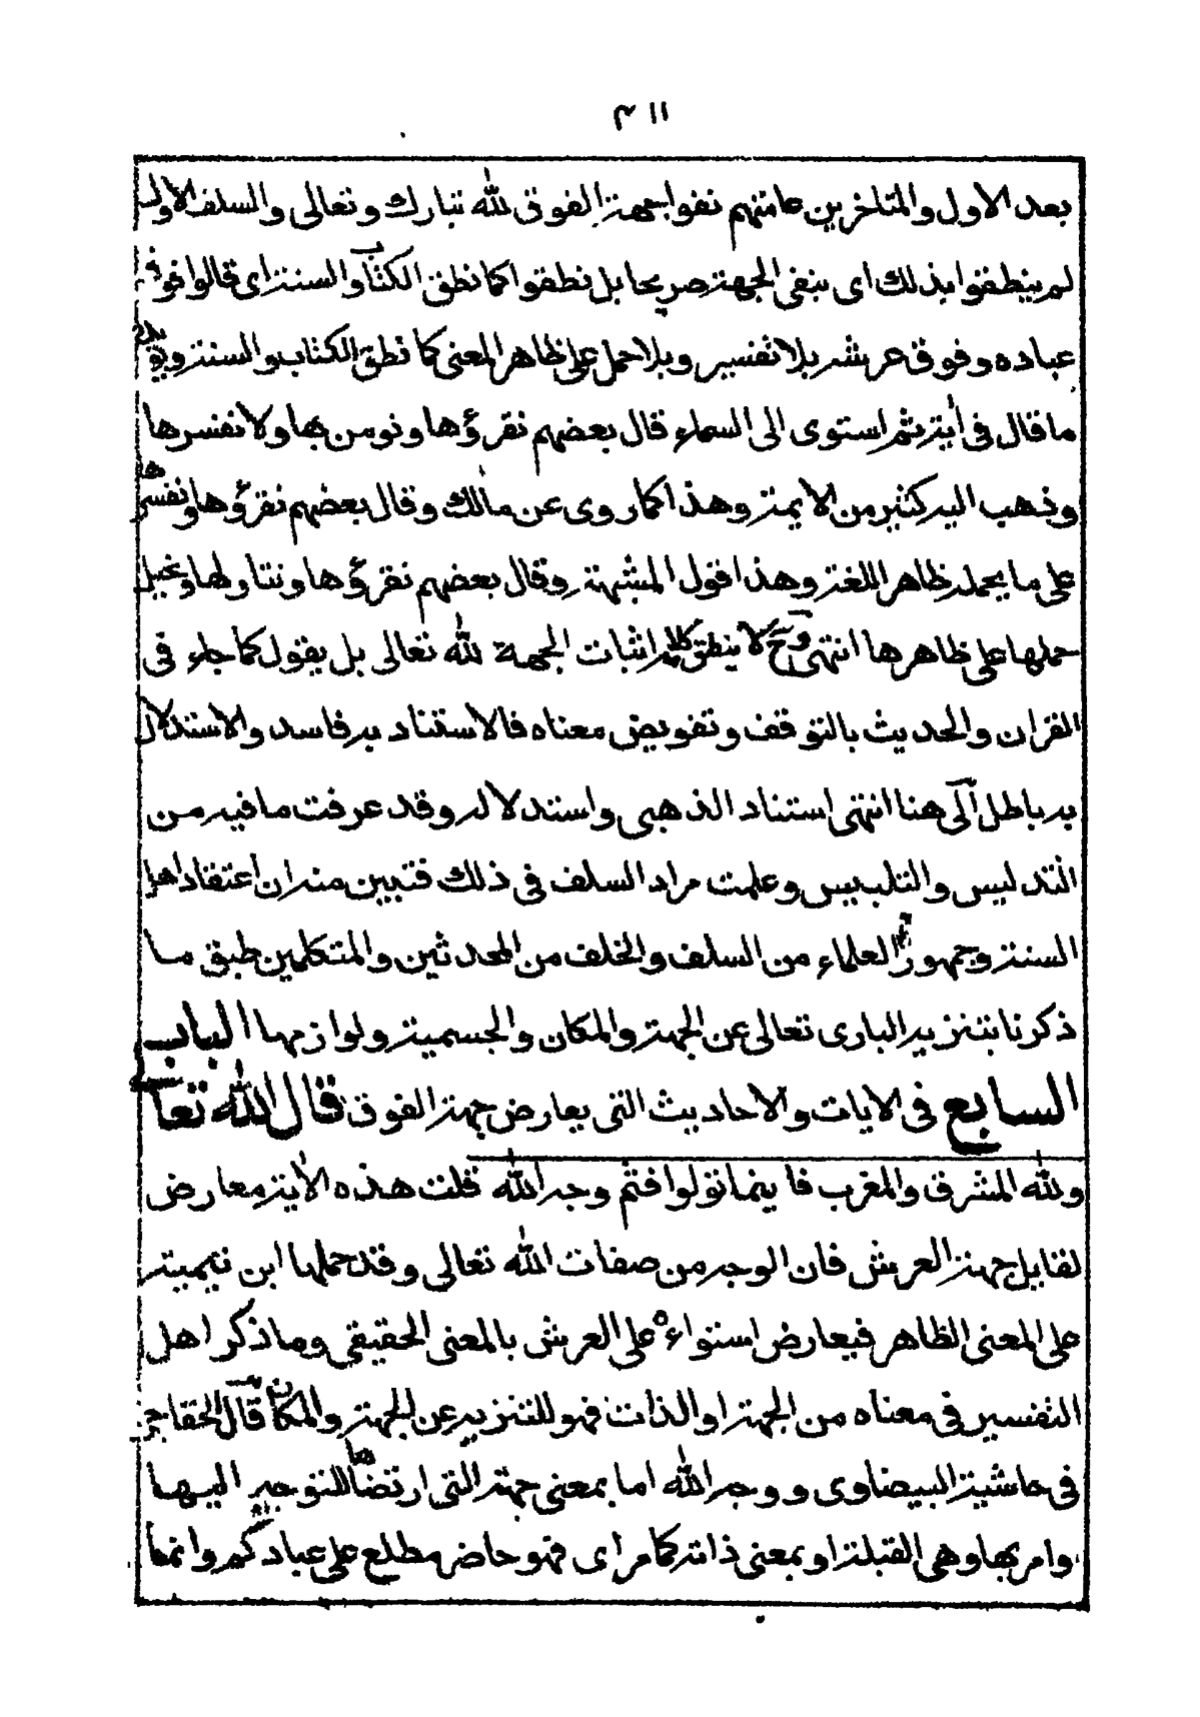 ١١٣
بعد الاول والمتاخرين عامتهم نفوا جهة الفوق لله تبارك وتعالى والسلف الاول
لم ينطقوا بذلك اى بنفى الجهة صريحا بل نطقوا كما نطق الكتاب والسنة اى قالوا فوق
عباده وفوق عرشه بلا تفسير وبلا حمل على ظاهر المعنى كما نطق الكتاب والسنة
ما قال فى اية ثم استوى الى السماء قال بعضهم نقرؤها ونومن بها ولا نفسرها
وذهب اليه كثير من الايمة وهذا كما روى عن مالك وقال بعضهم نقرؤها ونفسرها
على ما يحمله ظاهر اللغة وهذا قول المشبهة وقال بعضهم نقرؤها ونتاولها ونحيل
حملها على ظاهرها انتهى وح لا ينطق كلامه اثبات الجهة لله تعالى بل يقول كما جاء فى
القران والحديث بالتوقف وتفويض معناه فالاستناد به فاسد والاستدلال
به باطل الى هنا انتهى استناد الذهبى واستدلاله وقد عرفت ما فيه من
التدليس والتلبيس وعلمت مراد السلف فى ذلك فتبين منه ان اعتقاد اهل
السنة وجمهور العلماء من السلف والخلف من المحدثين والمتكلمين طبق ما
ذكرنا بتنزيه البارى تعالى عن الجهة والمكان والجسمية ولوازمها الباب
السابع فى الايات والاحاديث التى يعارض جهة الفوق قال الله تعا
ولله المشرق والمغرب فاينما تولوا فثم وجه الله قلت هذه الاية معارض
لقايل جهة العرش فان الوجه من صفات الله تعالى وقد حملها ابن تيمية
على المعنى الظاهر فيعارض استواءه على العرش بالمعنى الحقيقى وما ذكر اهل
التفسير فى معناه من الجهة او الذات فهو للتنزيه عن الجهة والمكان قال الخفاجى
فى حاشية البيضاوى ووجه الله اما بمعنى جهته التى ارتضاها للتوجه اليها
وامر بها وهى القبلة او بمعنى ذاته كما مر اى فهو حاضر مطلع على عبادتكم وانما